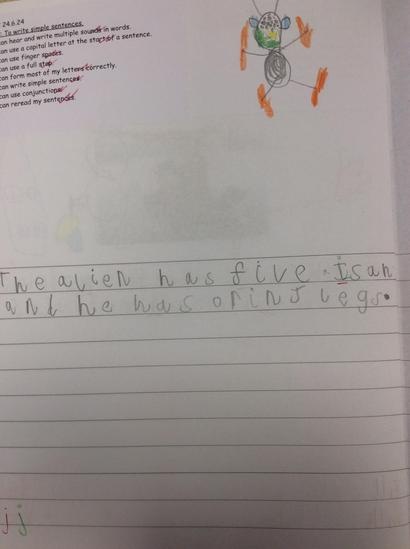 24.6.24
: To write simple sentences.
can hear and write multiple sounds in words.
can use a capital letter at the start of a sentence.
can use finger spaces.
can use a full stop.
can form most of my letters correctly.
can write simple sentences.
can use conjunctions.
can reread my sentences.
The alien has five Isan
and he has orinj legs.
j j